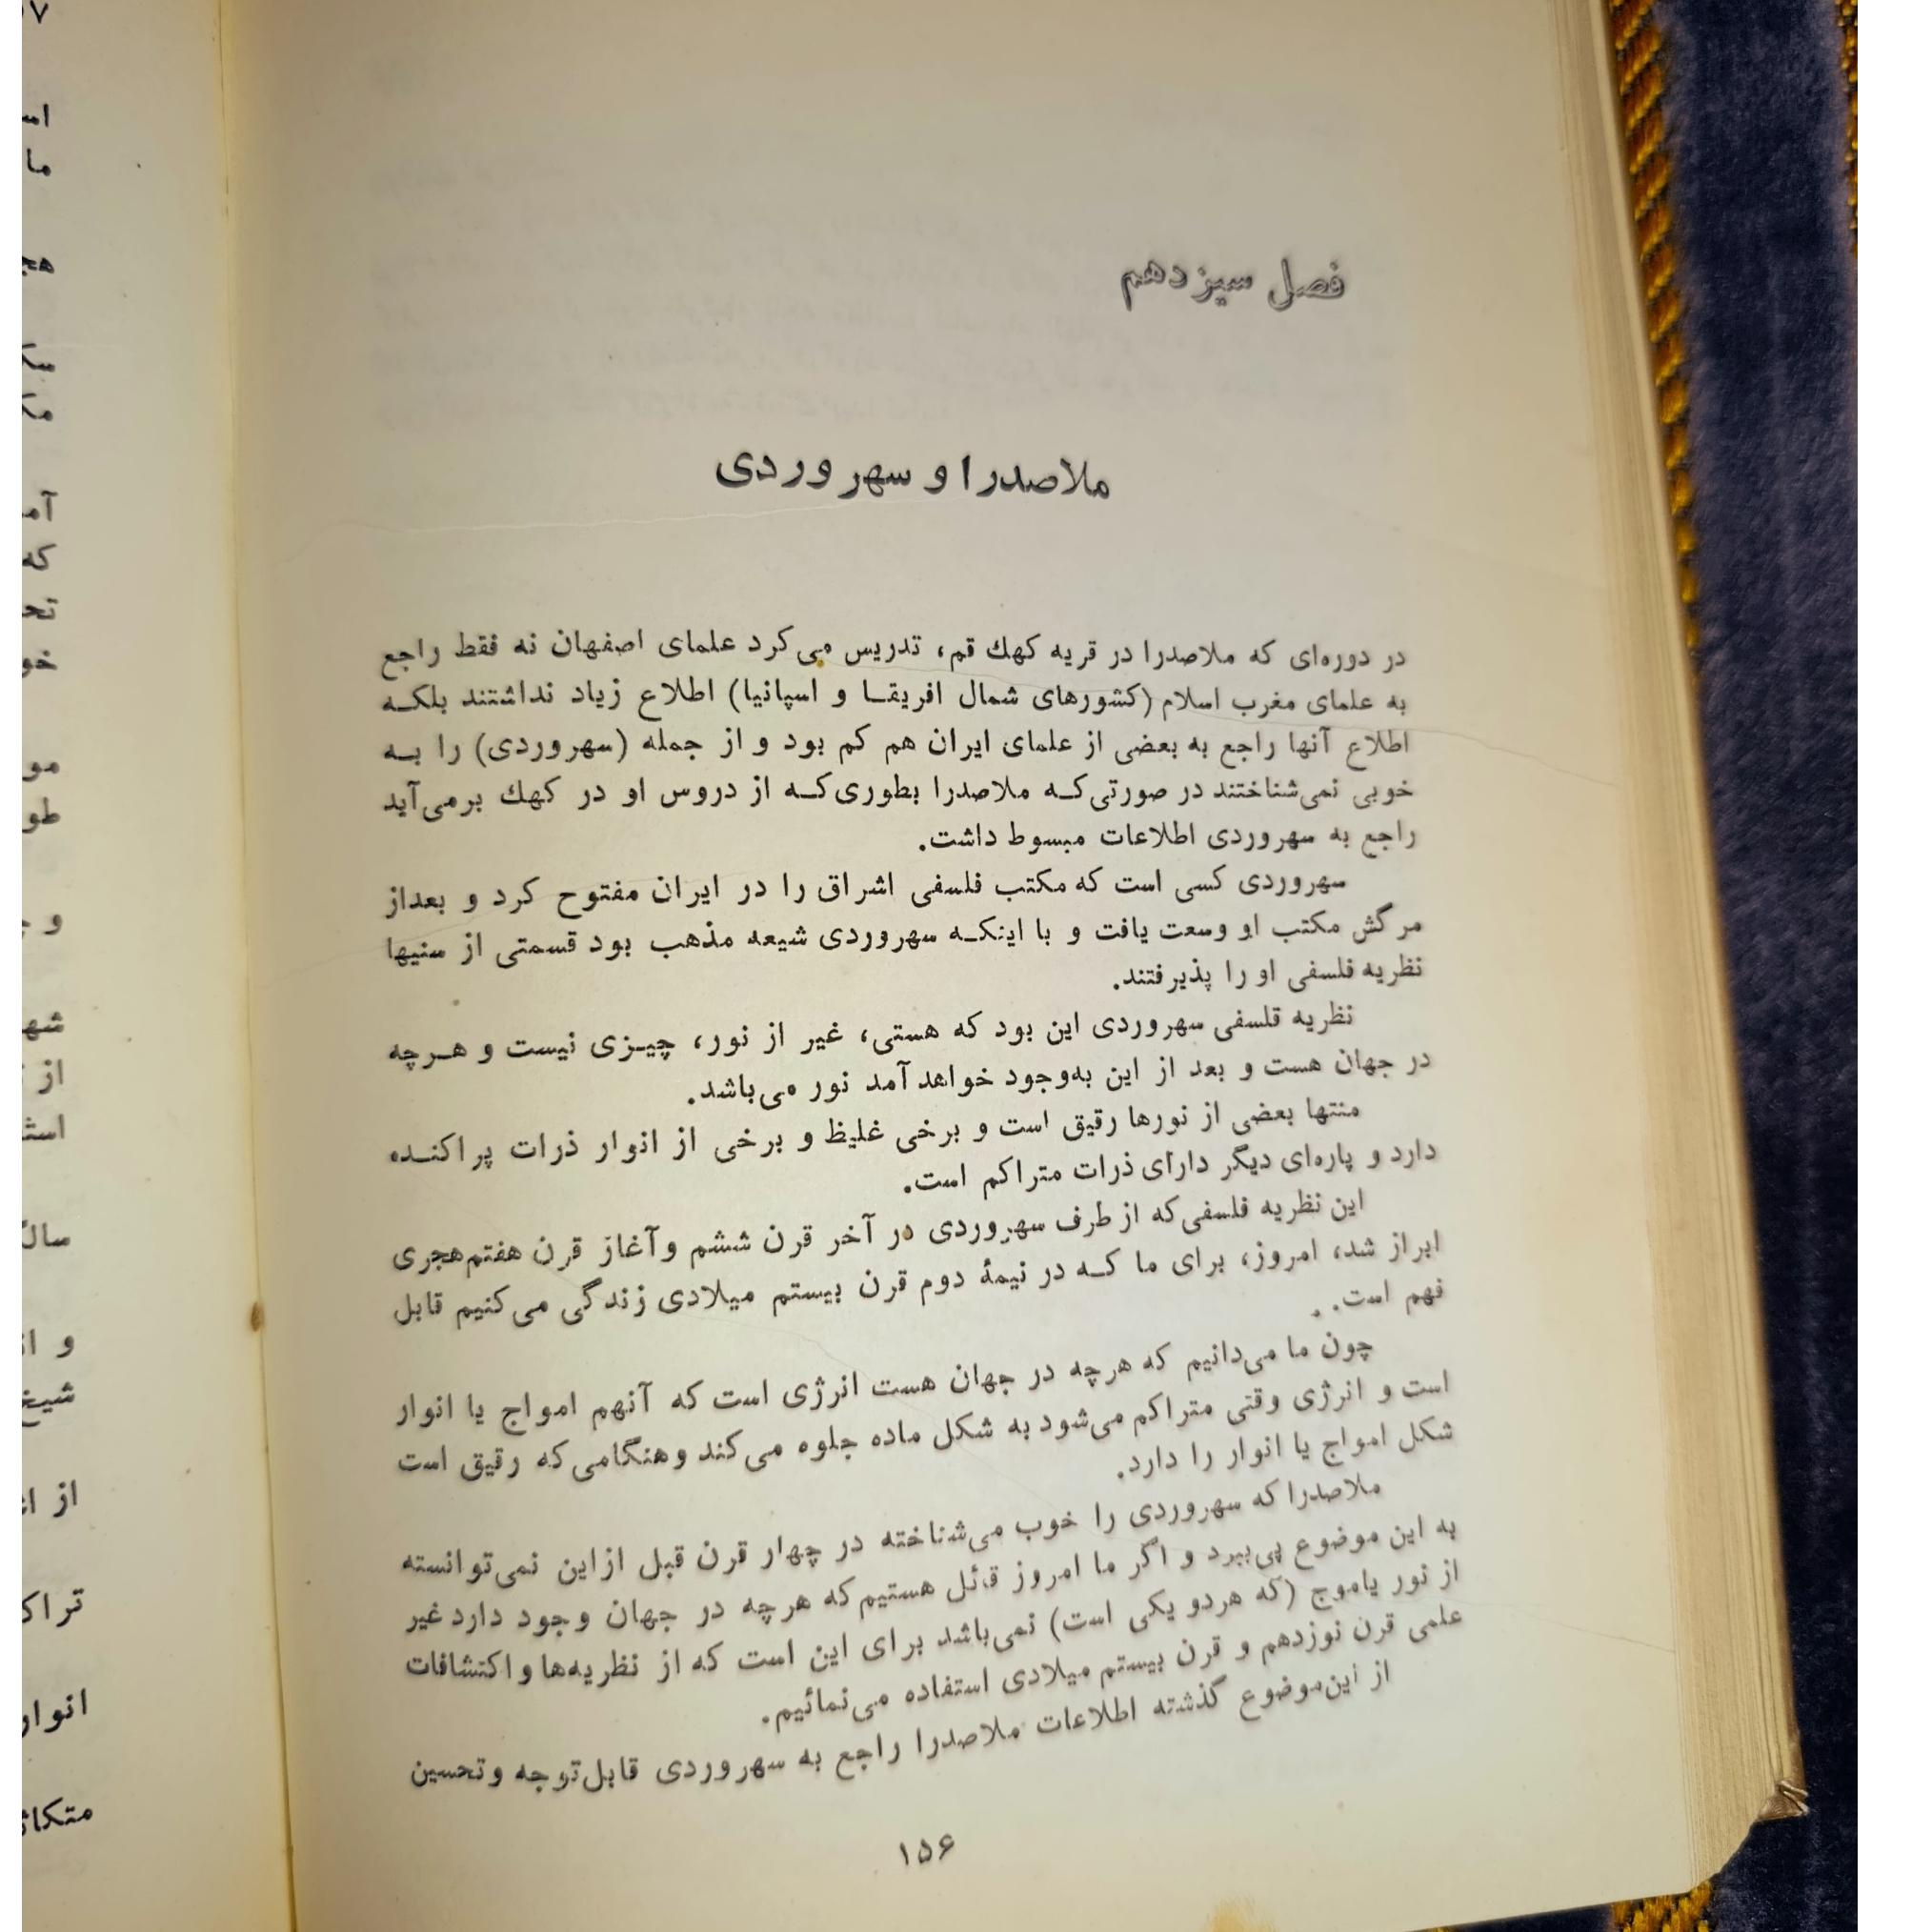 فصل سیزدهم
ملاصدرا و سهروردی
در دوره‌ای که ملاصدرا در قریه کهك قم، تدریس می‌کرد علمای اصفهان نه فقط راجع
به علمای مغرب اسلام (کشورهای شمال افریقا و اسپانیا) اطلاع زیاد نداشتند بلکه
اطلاع آنها راجع به بعضی از علمای ایران هم کم بود و از جمله (سهروردی) را به
خوبی نمی‌شناختند در صورتی‌که ملاصدرا بطوری‌که از دروس او در کهك برمی‌آید
راجع به سهروردی اطلاعات مبسوط داشت.
سهروردی کسی است که مکتب فلسفی اشراق را در ایران مفتوح کرد و بعداز
مرگش مکتب او وسعت یافت و با اینکه سهروردی شیعه مذهب بود قسمتی از سنیها
نظریه فلسفی او را پذیرفتند.
نظریه فلسفی سهروردی این بود که هستی، غیر از نور، چیزی نیست و هرچه
در جهان هست و بعد از این به‌وجود خواهد آمد نور می‌باشد.
منتها بعضی از نورها رقیق است و برخی غلیظ و برخی از انوار ذرات پراکنده
دارد و پاره‌ای دیگر دارای ذرات متراکم است.
این نظریه فلسفی‌که از طرف سهروردی در آخر قرن ششم و آغاز قرن هفتم هجری
ابراز شد، امروز، برای ما که در نیمهٔ دوم قرن بیستم میلادی زندگی می‌کنیم قابل
فهم است.
چون ما می‌دانیم که هرچه در جهان هست انرژی است که آنهم امواج یا انوار
است و انرژی وقتی متراکم می‌شود به شکل ماده جلوه می‌کند و هنگامی‌که رقیق است
شکل امواج یا انوار را دارد.
ملاصدرا که سهروردی را خوب می‌شناخته در چهار قرن قبل ازاین نمی‌توانسته
به این موضوع پی‌ببرد و اگر ما امروز قائل هستیم که هرچه در جهان وجود دارد غیر
از نور یاموج (که هردو یکی است) نمی‌باشد برای این است که از نظریه‌ها و اکتشافات
علمی قرن نوزدهم و قرن بیستم میلادی استفاده می‌نمائیم.
از این‌موضوع گذشته اطلاعات ملاصدرا راجع به سهروردی قابل‌توجه و تحسین
۱۵۶